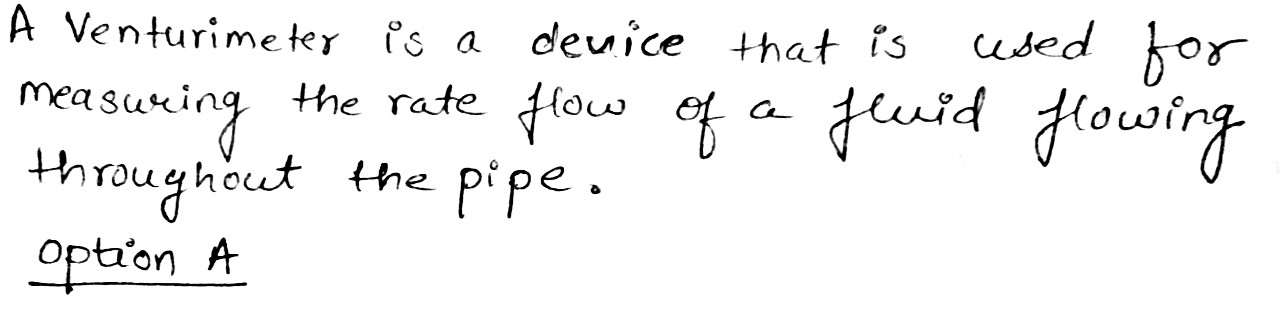 A Venturimeter is a device that is used for
measuring the rate flow of a fluid flowing
throughout the pipe.
Option A